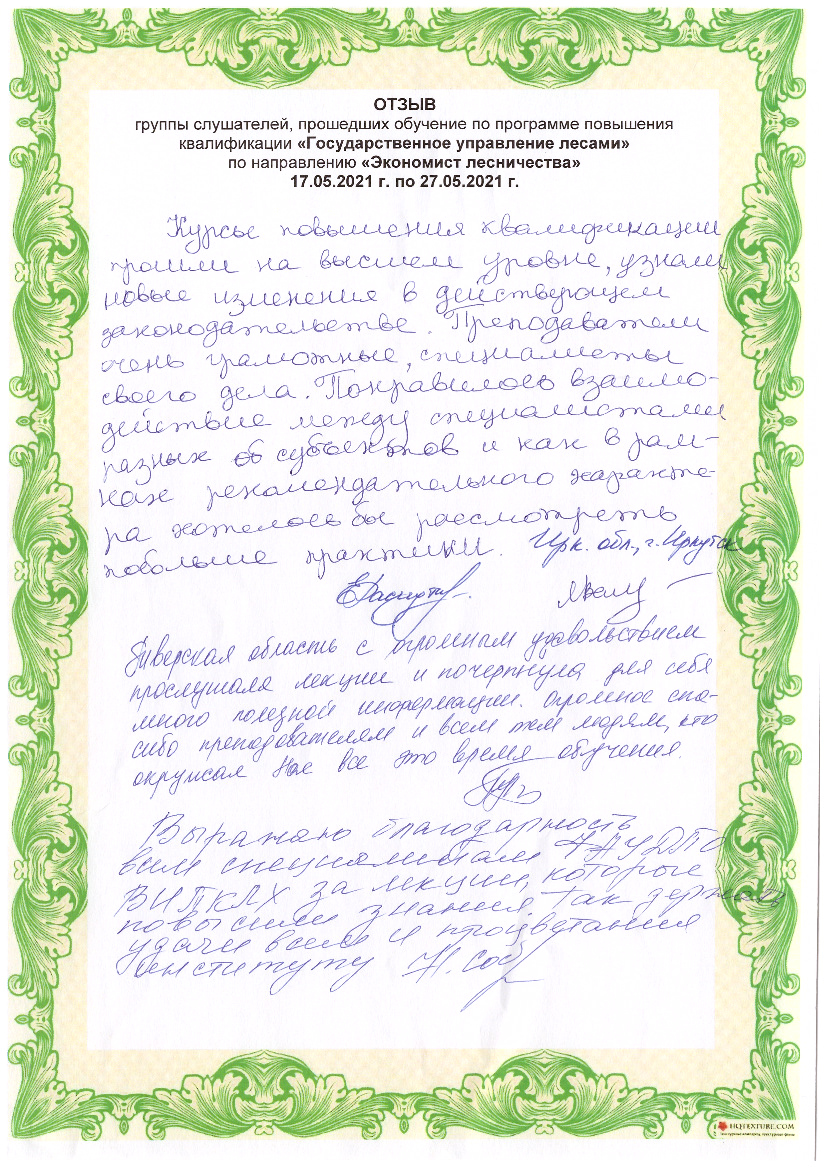 ОТЗЫВ
группы слушателей, прошедших обучение по программе повышения
квалификации «Государственное управление лесами»
по направлению «Экономист лесничества»
17.05.2021 г. по 27.05.2021 г.
Курсы повышения квалификации
прошли на высшем уровне, узнали
новые изменения в действующем
законодательстве. Преподаватели
очень грамотные, специалисты
своего дела. Понравилось взаимо-
действие между специалистами
разных субъектов и как в рам-
ках рекомендательного характе-
ра хотелось бы рассмотреть
побольше практики. Ирк. обл., г. Иркутск
Тверская область с огромным удовольствием
прослушала лекции и почерпнула для себя
много полезной информации. Огромное спа-
сибо преподавателям и всем тем людям, кто
окружал нас все это время обучения.
Выражаю благодарность
всем специалистам ФАУ ДПО
ВИПКЛХ за лекции, которые
повысили знания. Так держать
удачи всем и процветания
институту Н.
HQ-TEXTURE.COM